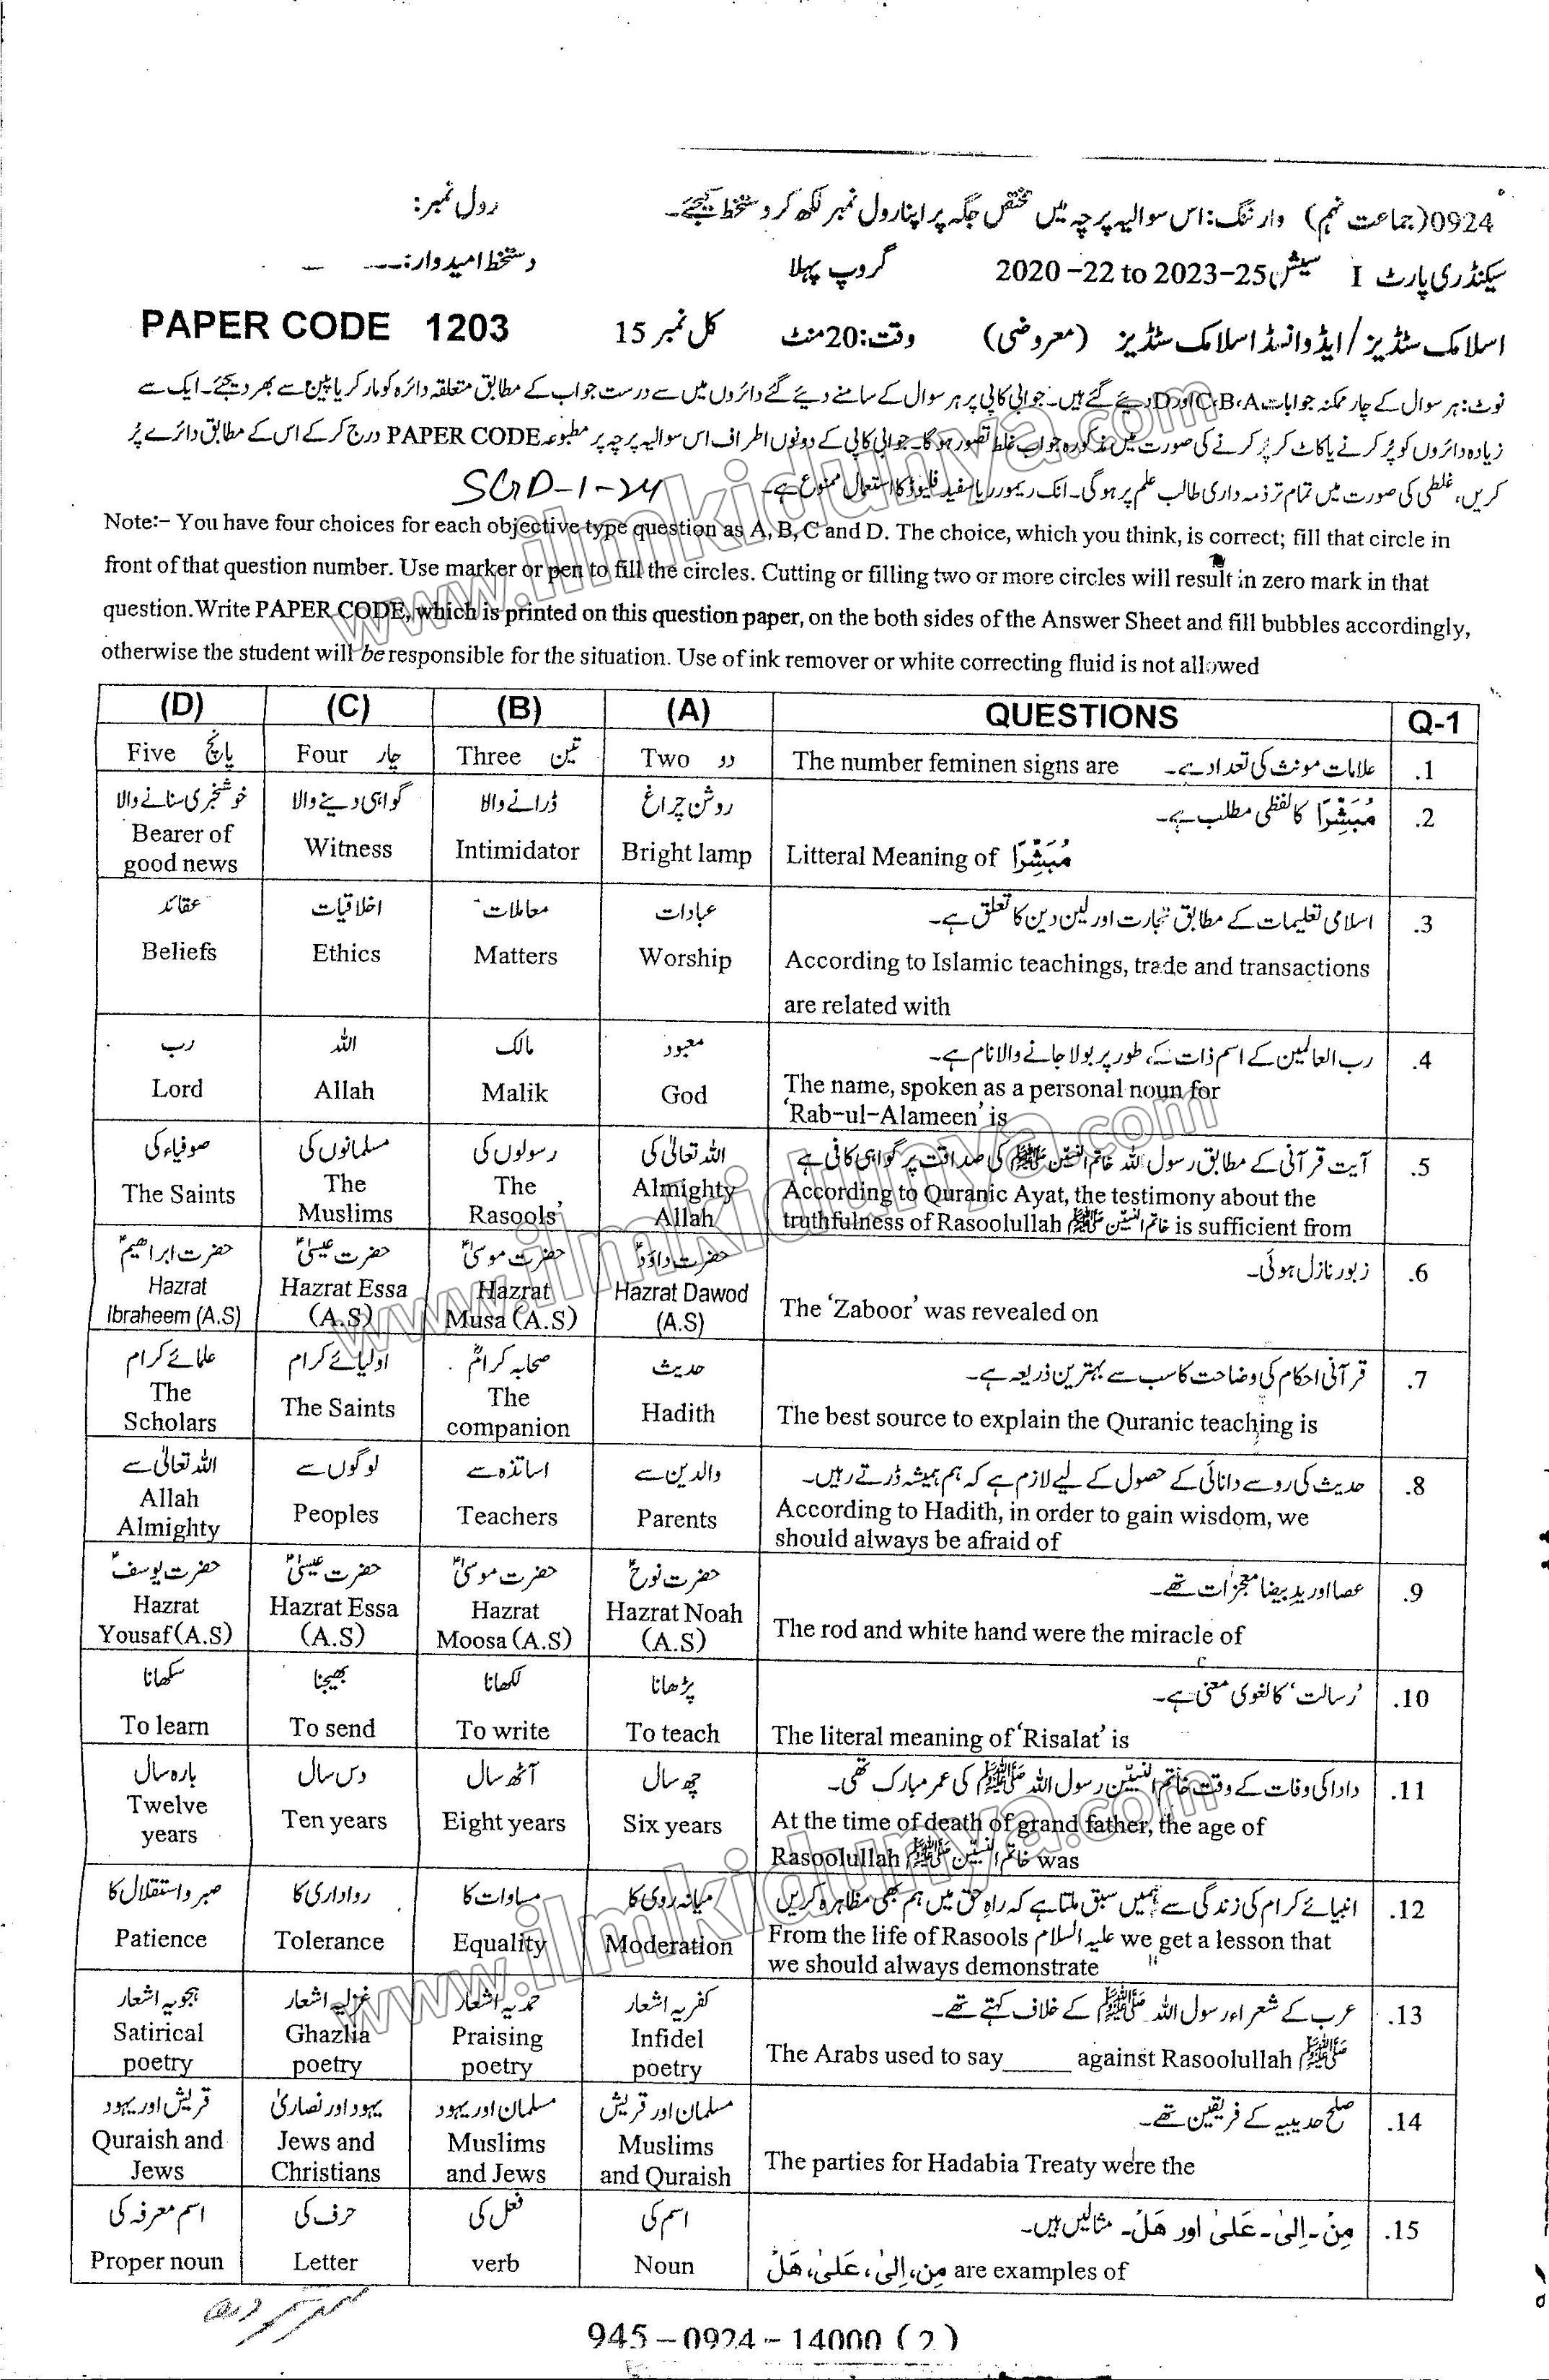 0924(جماعت نہم) وارننگ: اس سوالیہ پرچہ میں مختص جگہ پر اپنا رول نمبر لکھ کر دستخط کیجئے۔ رول نمبر:
سیکنڈری پارٹ I سیشن 2020-22 to 2023-25 گروپ پہلا دستخط امیدوار:
اسلامک سٹڈیز/ایڈوانسڈ اسلامک سٹڈیز (معروضی) وقت:20منٹ کل نمبر 15 PAPER CODE 1203
نوٹ: ہر سوال کے چار ممکنہ جوابات C،B،A اور D دیئے گئے ہیں۔ جوابی کاپی پر ہر سوال کے سامنے دیئے گئے دائروں میں سے درست جواب کے مطابق متعلقہ دائرہ کو مارکر یا پین سے بھر دیجئے۔ ایک سے
زیادہ دائروں کو پُر کرنے یا کاٹ کر پُر کرنے کی صورت میں مذکورہ جواب غلط تصور ہوگا۔ جوابی کاپی کے دونوں اطراف اس سوالیہ پرچہ پر مطبوعہ PAPER CODE درج کر کے اس کے مطابق دائرے پُر
کریں، غلطی کی صورت میں تمام تر ذمہ داری طالب علم پر ہوگی۔ انک ریموور یا سفید فلیوڈ کا استعمال ممنوع ہے۔ SGD-1-24
Note:- You have four choices for each objective type question as A, B, C and D. The choice, which you think, is correct; fill that circle in
front of that question number. Use marker or pen to fill the circles. Cutting or filling two or more circles will result in zero mark in that
question.Write PAPER CODE, which is printed on this question paper, on the both sides of the Answer Sheet and fill bubbles accordingly,
otherwise the student will be responsible for the situation. Use of ink remover or white correcting fluid is not allowed
(D) (C) (B) (A) QUESTIONS Q-1
Five پانچ Four چار Three تین Two دو The number feminen signs are علامات مونث کی تعداد ہے۔ .1
خوشخبری سنانے والا گواہی دینے والا ڈرانے والا روشن چراغ مُبَشِّرًا کا لفظی مطلب ہے۔ .2
Bearer of good news Witness Intimidator Bright lamp Litteral Meaning of مُبَشِّرًا
عقائد اخلاقیات معاملات عبادات اسلامی تعلیمات کے مطابق تجارت اور لین دین کا تعلق ہے۔ .3
Beliefs Ethics Matters Worship According to Islamic teachings, trade and transactions
are related with
رب اللہ مالک معبود رب العالمین کے اسم ذات کے طور پر بولا جانے والا نام ہے۔ .4
Lord Allah Malik God The name, spoken as a personal noun for
'Rab-ul-Alameen' is
صوفیاء کی مسلمانوں کی رسولوں کی اللہ تعالیٰ کی آیت قرآنی کے مطابق رسول اللہ خاتم النبیّٖن ﷺ کی صداقت پر گواہی کافی ہے .5
The Saints The Muslims The Rasools' Almighty Allah According to Quranic Ayat, the testimony about the
truthfulness of Rasoolullah خاتم النبیّٖن ﷺ is sufficient from
حضرت ابراھیمؑ حضرت عیسیٰؑ حضرت موسیٰؑ حضرت داؤدؑ زبور نازل ہوئی۔ .6
Hazrat Ibraheem (A.S) Hazrat Essa (A.S) Hazrat Musa (A.S) Hazrat Dawod (A.S) The 'Zaboor' was revealed on
علمائے کرام اولیائے کرام صحابہ کرامؓ حدیث قرآنی احکام کی وضاحت کا سب سے بہترین ذریعہ ہے۔ .7
The Scholars The Saints The companion Hadith The best source to explain the Quranic teaching is
اللہ تعالیٰ سے لوگوں سے اساتذہ سے والدین سے حدیث کی رو سے دانائی کے حصول کے لیے لازم ہے کہ ہم ہمیشہ ڈرتے رہیں۔ .8
Allah Almighty Peoples Teachers Parents According to Hadith, in order to gain wisdom, we
should always be afraid of
حضرت یوسفؑ حضرت عیسیٰؑ حضرت موسیٰؑ حضرت نوحؑ عصا اور یدِ بیضا معجزات تھے۔ .9
Hazrat Yousaf (A.S) Hazrat Essa (A.S) Hazrat Moosa (A.S) Hazrat Noah (A.S) The rod and white hand were the miracle of
سکھانا بھیجنا لکھانا پڑھانا 'رسالت' کا لغوی معنی ہے۔ .10
To learn To send To write To teach The literal meaning of 'Risalat' is
بارہ سال دس سال آٹھ سال چھ سال دادا کی وفات کے وقت خاتم النبیّٖن رسول اللہ ﷺ کی عمر مبارک تھی۔ .11
Twelve years Ten years Eight years Six years At the time of death of grand father, the age of
Rasoolullah خاتم النبیّٖن ﷺ was
صبر و استقلال کا رواداری کا مساوات کا میانہ روی کا انبیائے کرام کی زندگی سے ہمیں سبق ملتا ہے کہ راہِ حق میں ہم بھی مظاہرہ کریں .12
Patience Tolerance Equality Moderation From the life of Rasools علیہ السلام we get a lesson that
we should always demonstrate
ہجویہ اشعار غزلیہ اشعار حمدیہ اشعار کفریہ اشعار عرب کے شعراء رسول اللہ ﷺ کے خلاف کہتے تھے۔ .13
Satirical poetry Ghazlia poetry Praising poetry Infidel poetry The Arabs used to say_____ against Rasoolullah ﷺ
قریش اور یہود یہود اور نصاریٰ مسلمان اور یہود مسلمان اور قریش صلح حدیبیہ کے فریقین تھے۔ .14
Quraish and Jews Jews and Christians Muslims and Jews Muslims and Quraish The parties for Hadabia Treaty were the
اسم معرفہ کی حرف کی فعل کی اسم کی مِنْ۔اِلیٰ۔عَلیٰ اور ھَلْ۔ مثالیں ہیں۔ .15
Proper noun Letter verb Noun مِن، اِلیٰ، عَلیٰ، ھَلْ are examples of
945-0924-14000 (2)
www.ilmkidunya.com
www.ilmkidunya.com
www.ilmkidunya.com